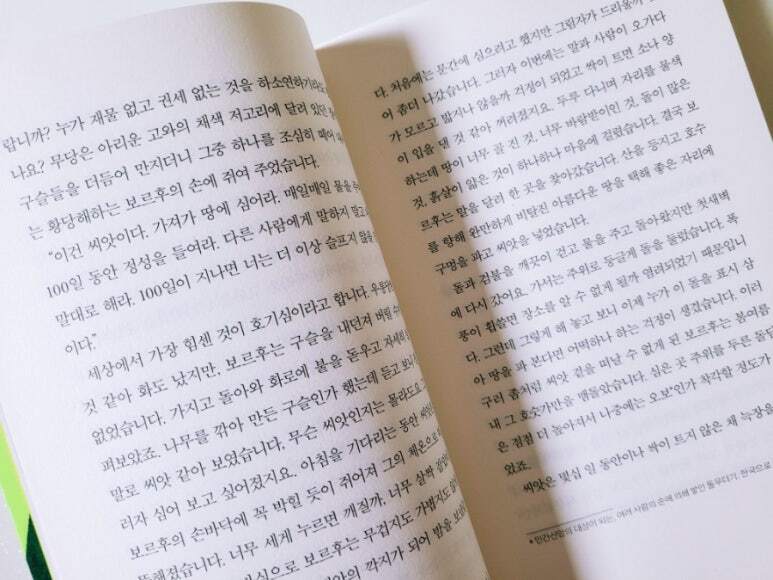 랍니까? 누가 재물 없고 권세 없는 것을 하소연하기라도
나요? 무당은 아리운 고와의 채색 저고리에 달려 있던
구슬들을 더듬어 만지더니 그중 하나를 조심히 떼어
는 황당해하는 보르후의 손에 쥐여 주었습니다.
“이건 씨앗이다. 가져가 땅에 심어라. 매일매일 물을
100일 동안 정성을 들여라. 다른 사람에게 말하지 말고
말대로 해라. 100일이 지나면 너는 더 이상 슬프지 않을
이다.”
세상에서 가장 힘센 것이 호기심이라고 합니다.
것 같아 화도 났지만, 보르후는 구슬을 내던져 버릴 수
없었습니다. 가지고 돌아와 화로에 불을 돋우고 자세히
펴보았죠. 나무를 깎아 만든 구슬인가 했는데 듣고 보니
말로 씨앗 같아 보였습니다. 무슨 씨앗인지는 몰라도요.
리자 심어 보고 싶어졌지요. 아침을 기다리는 동안 씨앗
보르후의 손바닥에 꼭 박힐 듯이 쥐어져 그의 체온으로
뜻해졌습니다. 너무 세게 누르면 깨질까, 너무 살짝
보르후는 무겁지도 가볍지도
깍지가 되어 밤을
다. 처음에는 문간에 심으려고 했지만 그림자가 드리울까
어 좀더 나갔습니다. 그러자 이번에는 말과 사람이 오가다
가 모르고 밟지나 않을까 걱정이 되었고 싹이 트면 소나 양
이 입을 댈 것 같아 꺼려졌지요. 두루 다니며 자리를 물색
하는데 땅이 너무 꼴 진 것, 너무 바람받이인 것, 돌이 많은
것, 흙살이 얇은 것이 하나하나 마음에 걸렸습니다. 결국 보
르후는 말을 달려 한 곳을 찾아갔습니다. 산을 등지고 호수
를 향해 완만하게 비탈진 아름다운 땅을 택해 좋은 자리에
구멍을 파고 씨앗을 넣었습니다.
돌과 검불을 깨끗이 걷고 물을 주고 돌아왔지만 첫새벽
에 다시 갔어요. 가서는 주위로 둥글게 돌을 둘렀습니다. 폭
풍이 휩쓸면 장소를 알 수 없게 될까 염려되었기 때문입니
다. 그런데 그렇게 해 놓고 보니 이제 누가 이 돌을 표시 삼
아 땅을 파 본다면 어떡하나 하는 걱정이 생겼습니다. 이러
구러 좀처럼 씨앗 곁을 떠날 수 없게 된 보르후는 봄여름
내 그 호숫가만을 맴돌았습니다. 심은 곳 주위를 두른 돌
은 점점 더 높아져서 나중에는 오보*인가 착각할 정도가
었죠.
씨앗은 몇십 일 동안이나 싹이 트지 않은 채 누장을
* 민간신앙의 대상이 되는, 여러 사람의 손에 의해 쌓인 돌무더기. 한국으로